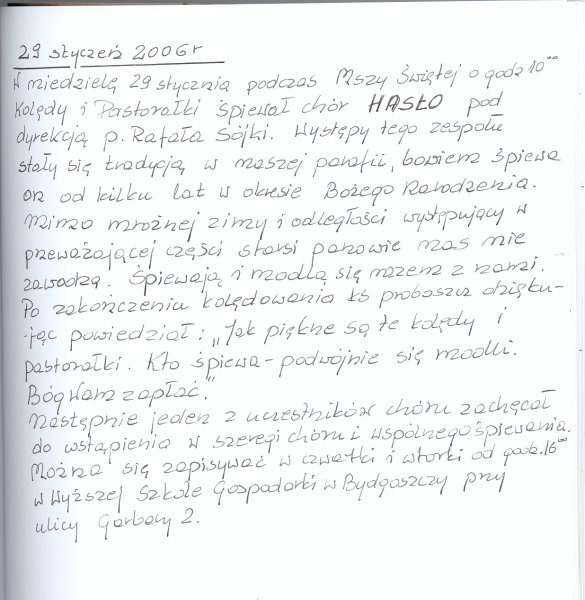 29 styczeń 2006r
W niedzielę 29 stycznia podczas Mszy Świętej o godz 10⁰⁰
Kolędy i Pastorałki śpiewał chór HASŁO pod
dyrekcją p. Rafała Sójki. Występy tego zespołu
stały się tradycją w naszej parafii, bowiem śpiewa
on od kilku lat w okresie Bożego Narodzenia.
Mimo mroźnej zimy i odległości występujący w
przeważającej części starsi panowie nas nie
zawodzą. Śpiewają i modlą się razem z nami.
Po zakończeniu kolędowania ks proboszcz dzięku-
jąc powiedział: „Jak piękne są te kolędy i
pastorałki. Kto śpiewa - podwójnie się modli.
Bóg Wam zapłać."
Następnie jeden z uczestników chóru zachęcał
do wstąpienia w szeregi chóru i wspólnego śpiewania.
Można się zapisywać w czwartki i wtorki od godz. 16⁰⁰
w Wyższej Szkole Gospodarki w Bydgoszczy przy
ulicy Garbary 2.